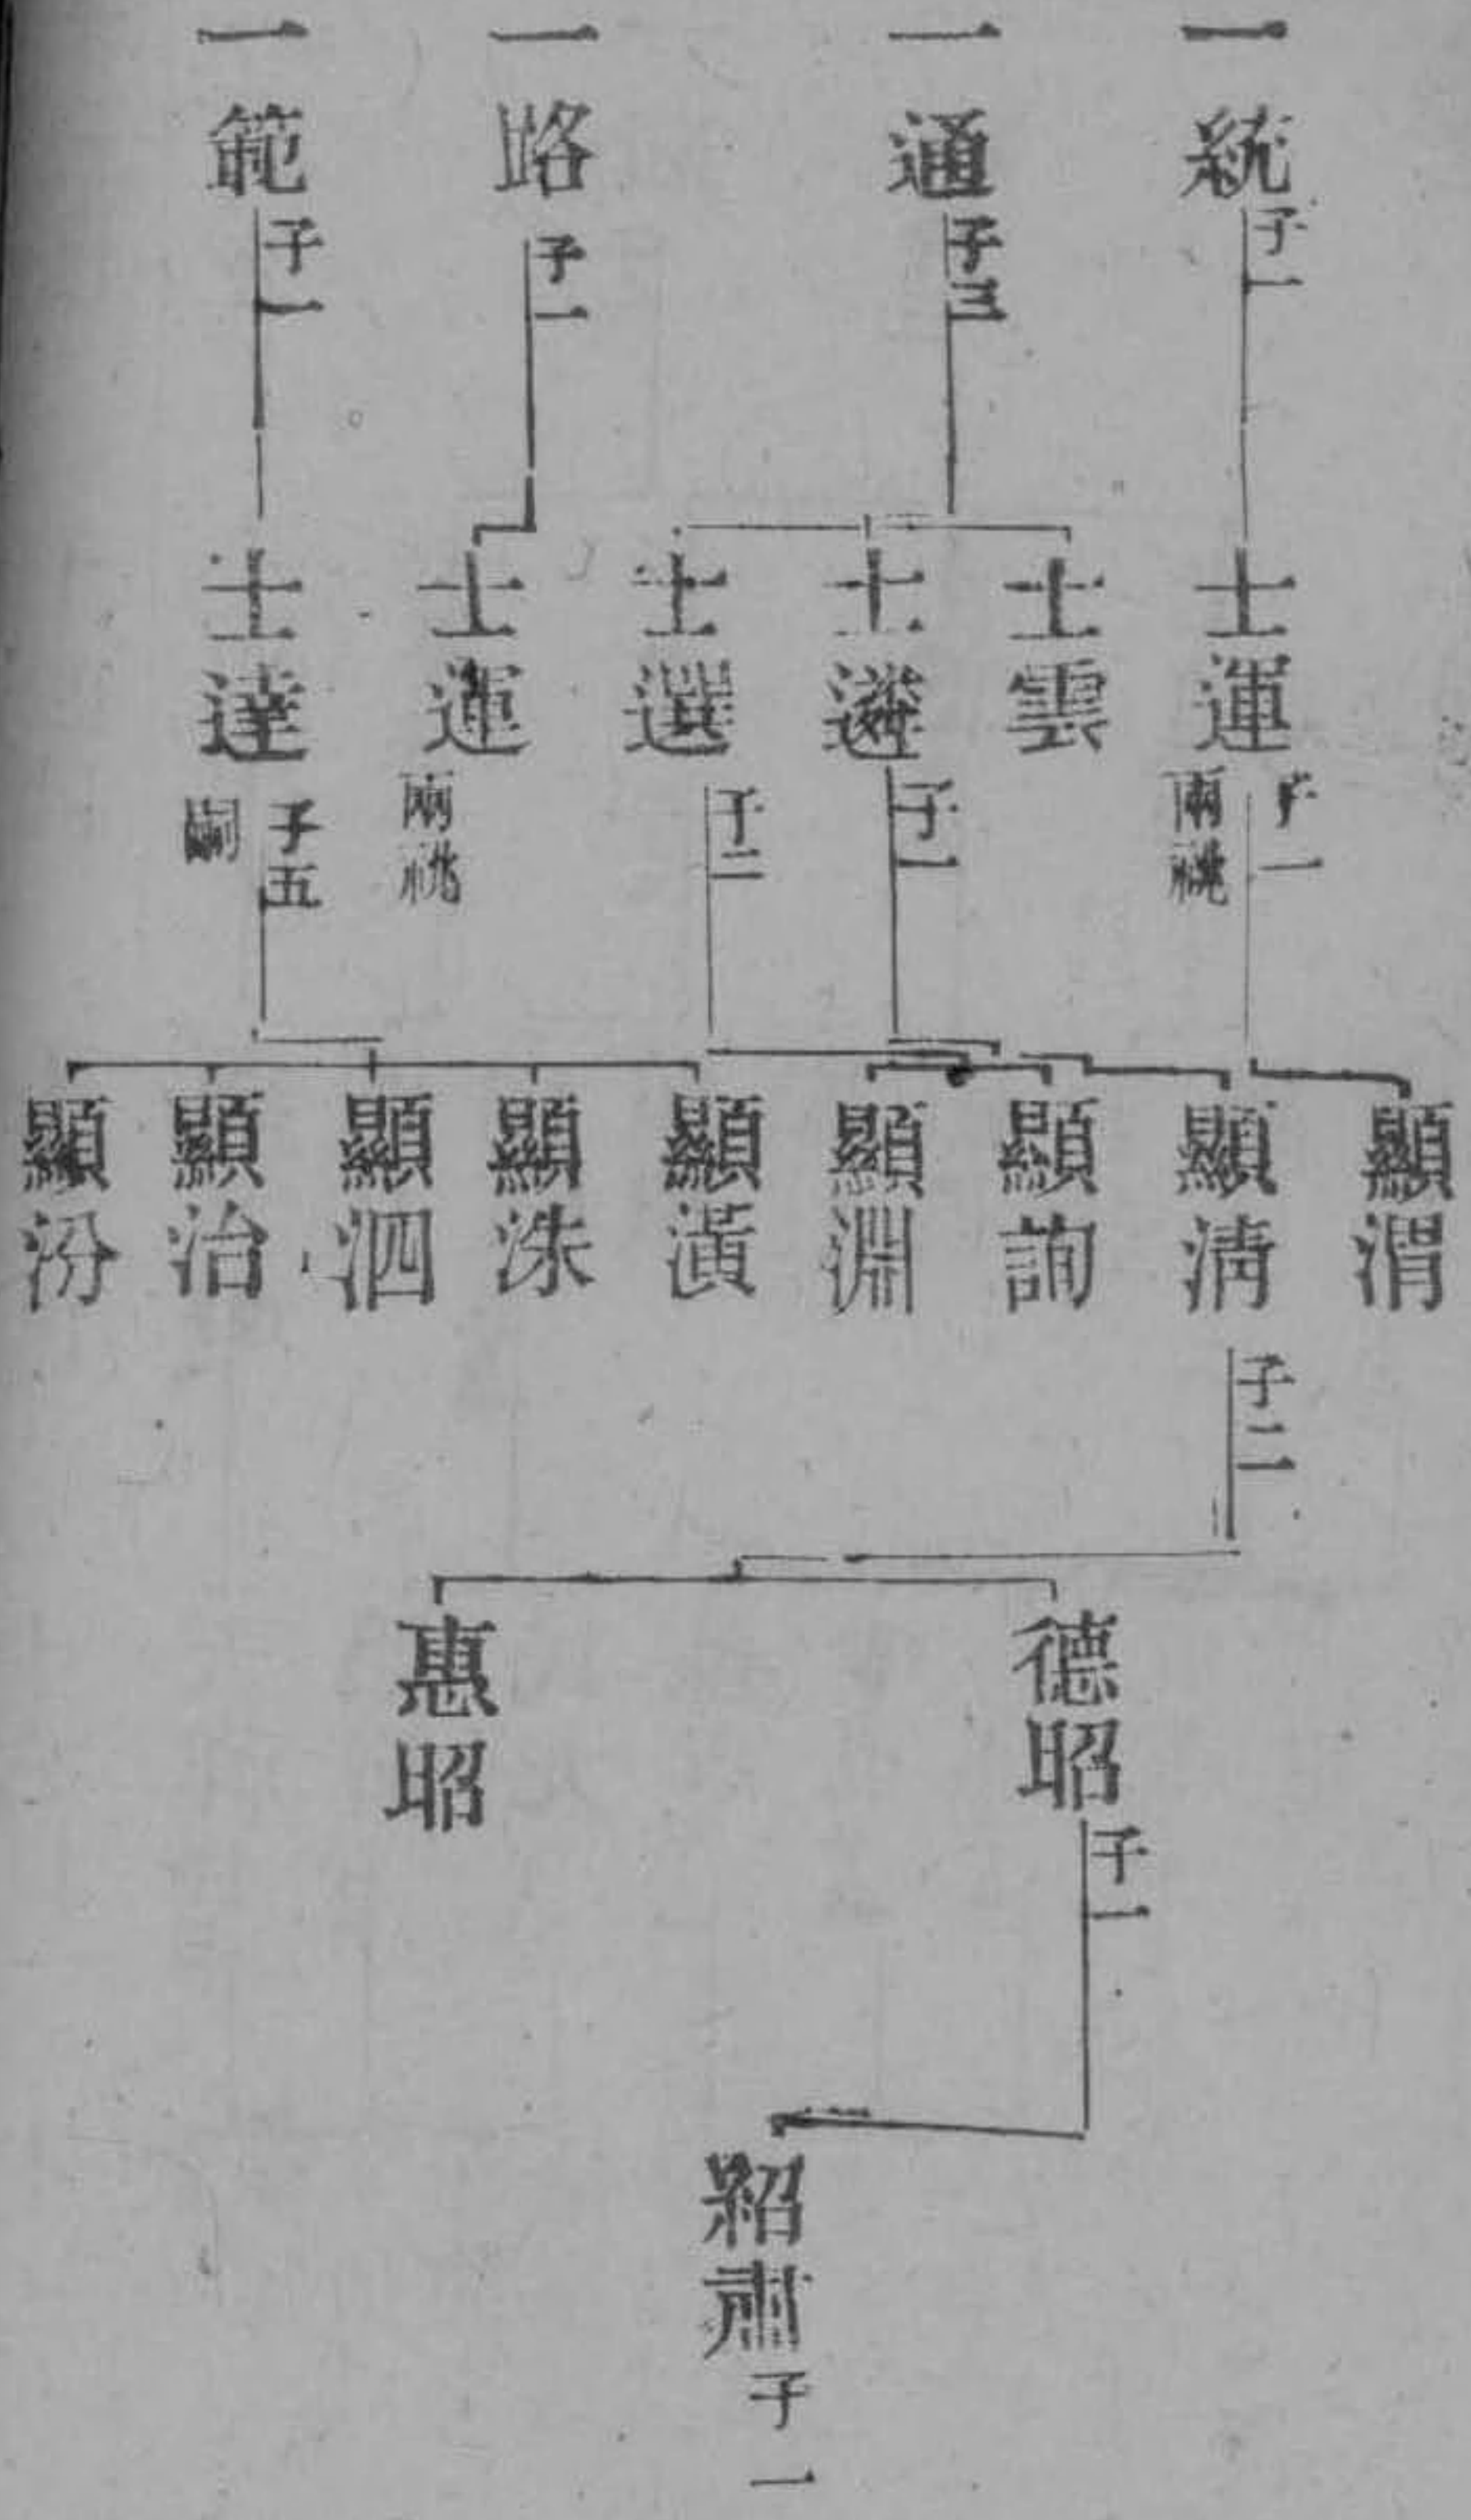 一統 子一
一通 子三
一路 子一
一範 子一
士運 子一 兩祧
士雲
士遴 子一
士選 子二
士運 兩祧
士達 子五 嗣
顯渭
顯清 子二
顯詢
顯淵
顯潢
顯洙
顯泗
顯治
顯汾
德昭 子一
惠昭
紹肅 子一